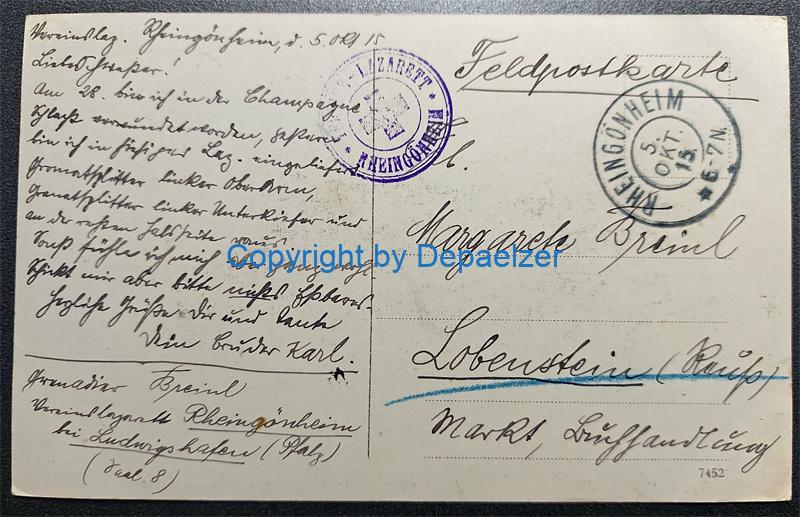 Vereinslaz. Rheingönheim, d. 5. Okt 15
Liebe Schwester!
Am 28. bin ich in der Champagne
Schlacht verwundet worden, gestern
bin ich in hiesiges Laz. eingeliefert
Granatsplitter linker Oberarm,
Granatsplitter linker Unterkiefer und
an der rechten Halsseite raus
Sonst fühle ich mich aber ganz wohl
Schickt mir aber bitte nichts Eßbares.
Herzliche Grüße Dir und Tante
Dein Bruder Karl.
Grenadier Breinl
Vereinslazarett Rheingönheim
bei Ludwigshafen (Pfalz)
(Saal 8)
LAZARETT * RHEINGÖNHEIM *
Feldpostkarte
RHEINGÖNHEIM
5.
OKT.
15
* 6-7N. *
Frl.
Margarete Breinl
Lobenstein (Reuß)
Markt, Buchhandlung
7452
Copyright by Depaelzer